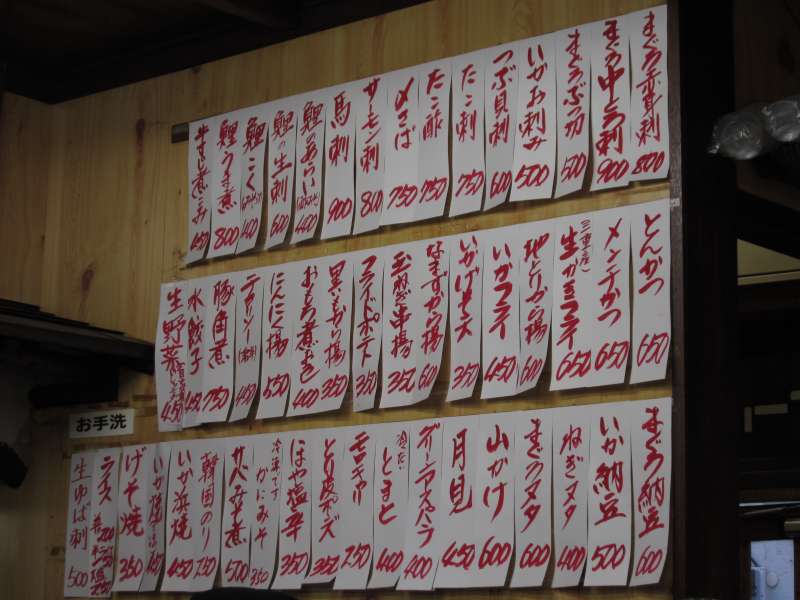 まぐろ赤身刺 800
まぐろ中とろ刺 900
まぐろぶつ切 500
いかお刺み 500
つぶ貝刺 600
たこ刺 750
たこ酢 750
〆さば 750
サーモン刺 800
馬刺 900
鯉のあらい 400
鯉の生刺 600
鯉こく 400
鯉うま煮 800
煮こみ 450
とんかつ 650
メンチかつ 650
生かきフライ 650
地とりから揚 600
いかフライ 450
いかげそ 350
なまずから揚 600
玉ねぎ串揚 350
フライドポテト 350
里いもから揚 350
おもち煮 400
にんにく揚 550
450
豚角煮 750
水餃子 450
生野菜 450
お手洗
まぐろ納豆 600
いか納豆 500
ねぎヌタ 400
まぐろヌタ 600
山かけ 600
月見 450
グリーンアスパラ 400
冷たい とまと 400
モロキュー 250
とり皮ポンズ 350
ほや塩辛 350
冷凍です かにみそ 350
さばみそ煮 500
韓国のり 250
いか浜焼 450
げそ焼 350
ライス
生ゆば刺 500